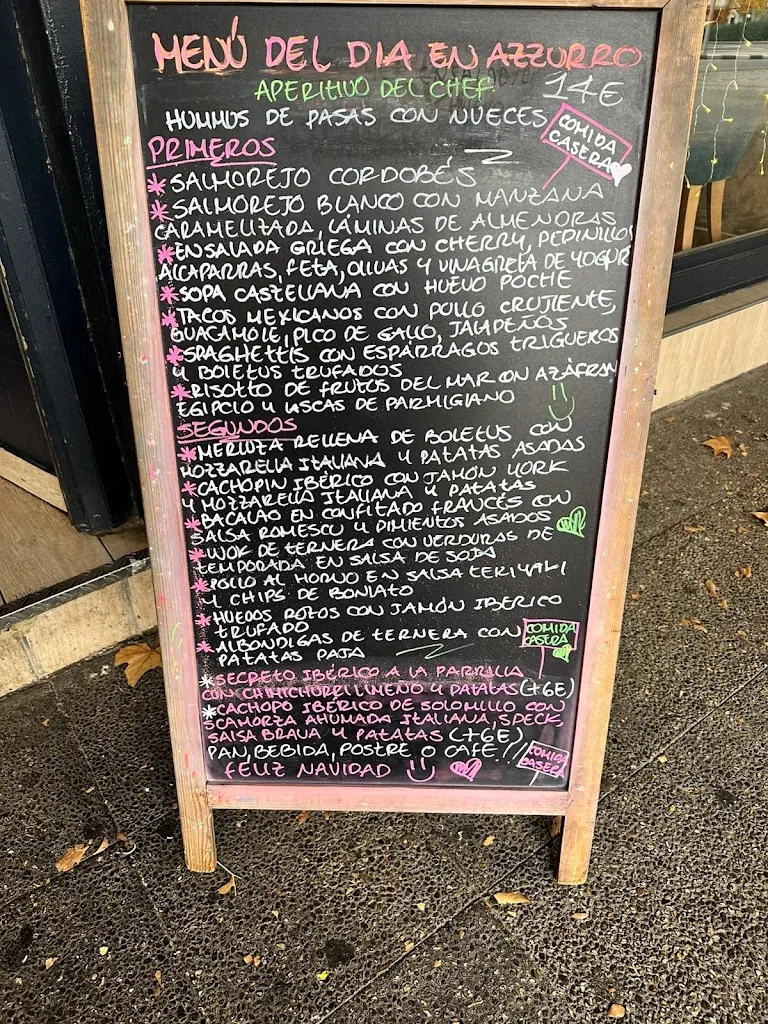 MENÚ DEL DIA EN AZZURRO
APERITIVO DEL CHEF 14€
HUMMUS DE PASAS CON NUECES
COMIDA
CASERA
PRIMEROS
* SALMOREJO CORDOBÉS
* SALMOREJO BLANCO CON MANZANA
CARAMELIZADA, LÁMINAS DE ALMENDRAS
* ENSALADA GRIEGA CON CHERRY, PEPINILLOS
ALCAPARRAS, FETA, OLIVAS Y VINAGRETA DE YOGUR
* SOPA CASTELLANA CON HUEVO POCHE
* TACOS MEXICANOS CON POLLO CRUJIENTE,
GUACAMOLE, PICO DE GALLO, JALAPEÑOS
* SPAGHETTIS CON ESPÁRRAGOS TRIGUEROS
Y BOLETUS TRUFADOS
* RISOTTO DE FRUTOS DEL MAR CON AZAFRAN
EGIPCIO Y LASCAS DE PARMIGIANO
SEGUNDOS
* MERLUZA RELLENA DE BOLETUS CON
MOZZARELLA ITALIANA Y PATATAS ASADAS
* CACHOPIN IBÉRICO CON JAMÓN YORK
Y MOZZARELLA ITALIANA Y PATATAS
* BACALAO EN CONFITADO FRANCÉS CON
SALSA ROMESCU Y PIMIENTOS ASADOS
* WOK DE TERNERA CON VERDURAS DE
TEMPORADA EN SALSA DE SOJA
* POLLO AL HORNO EN SALSA TERIYAKI
Y CHIPS DE BONIATO
* HUEVOS ROTOS CON JAMÓN IBÉRICO
TRUFADO
* ALBONDIGAS DE TERNERA CON
PATATAS PAJA
COMIDA
CASERA
* SECRETO IBÉRICO A LA PARRILLA
CON CHIMICHURRI LIMEÑO Y PATATAS (+6€)
* CACHOPO IBÉRICO DE SOLOMILLO CON
SCAMORZA AHUMADA ITALIANA, SPECK,
SALSA BRAVA Y PATATAS (+6€)
PAN, BEBIDA, POSTRE O CAFÉ!!!
COMIDA
CASERA
FELIZ NAVIDAD